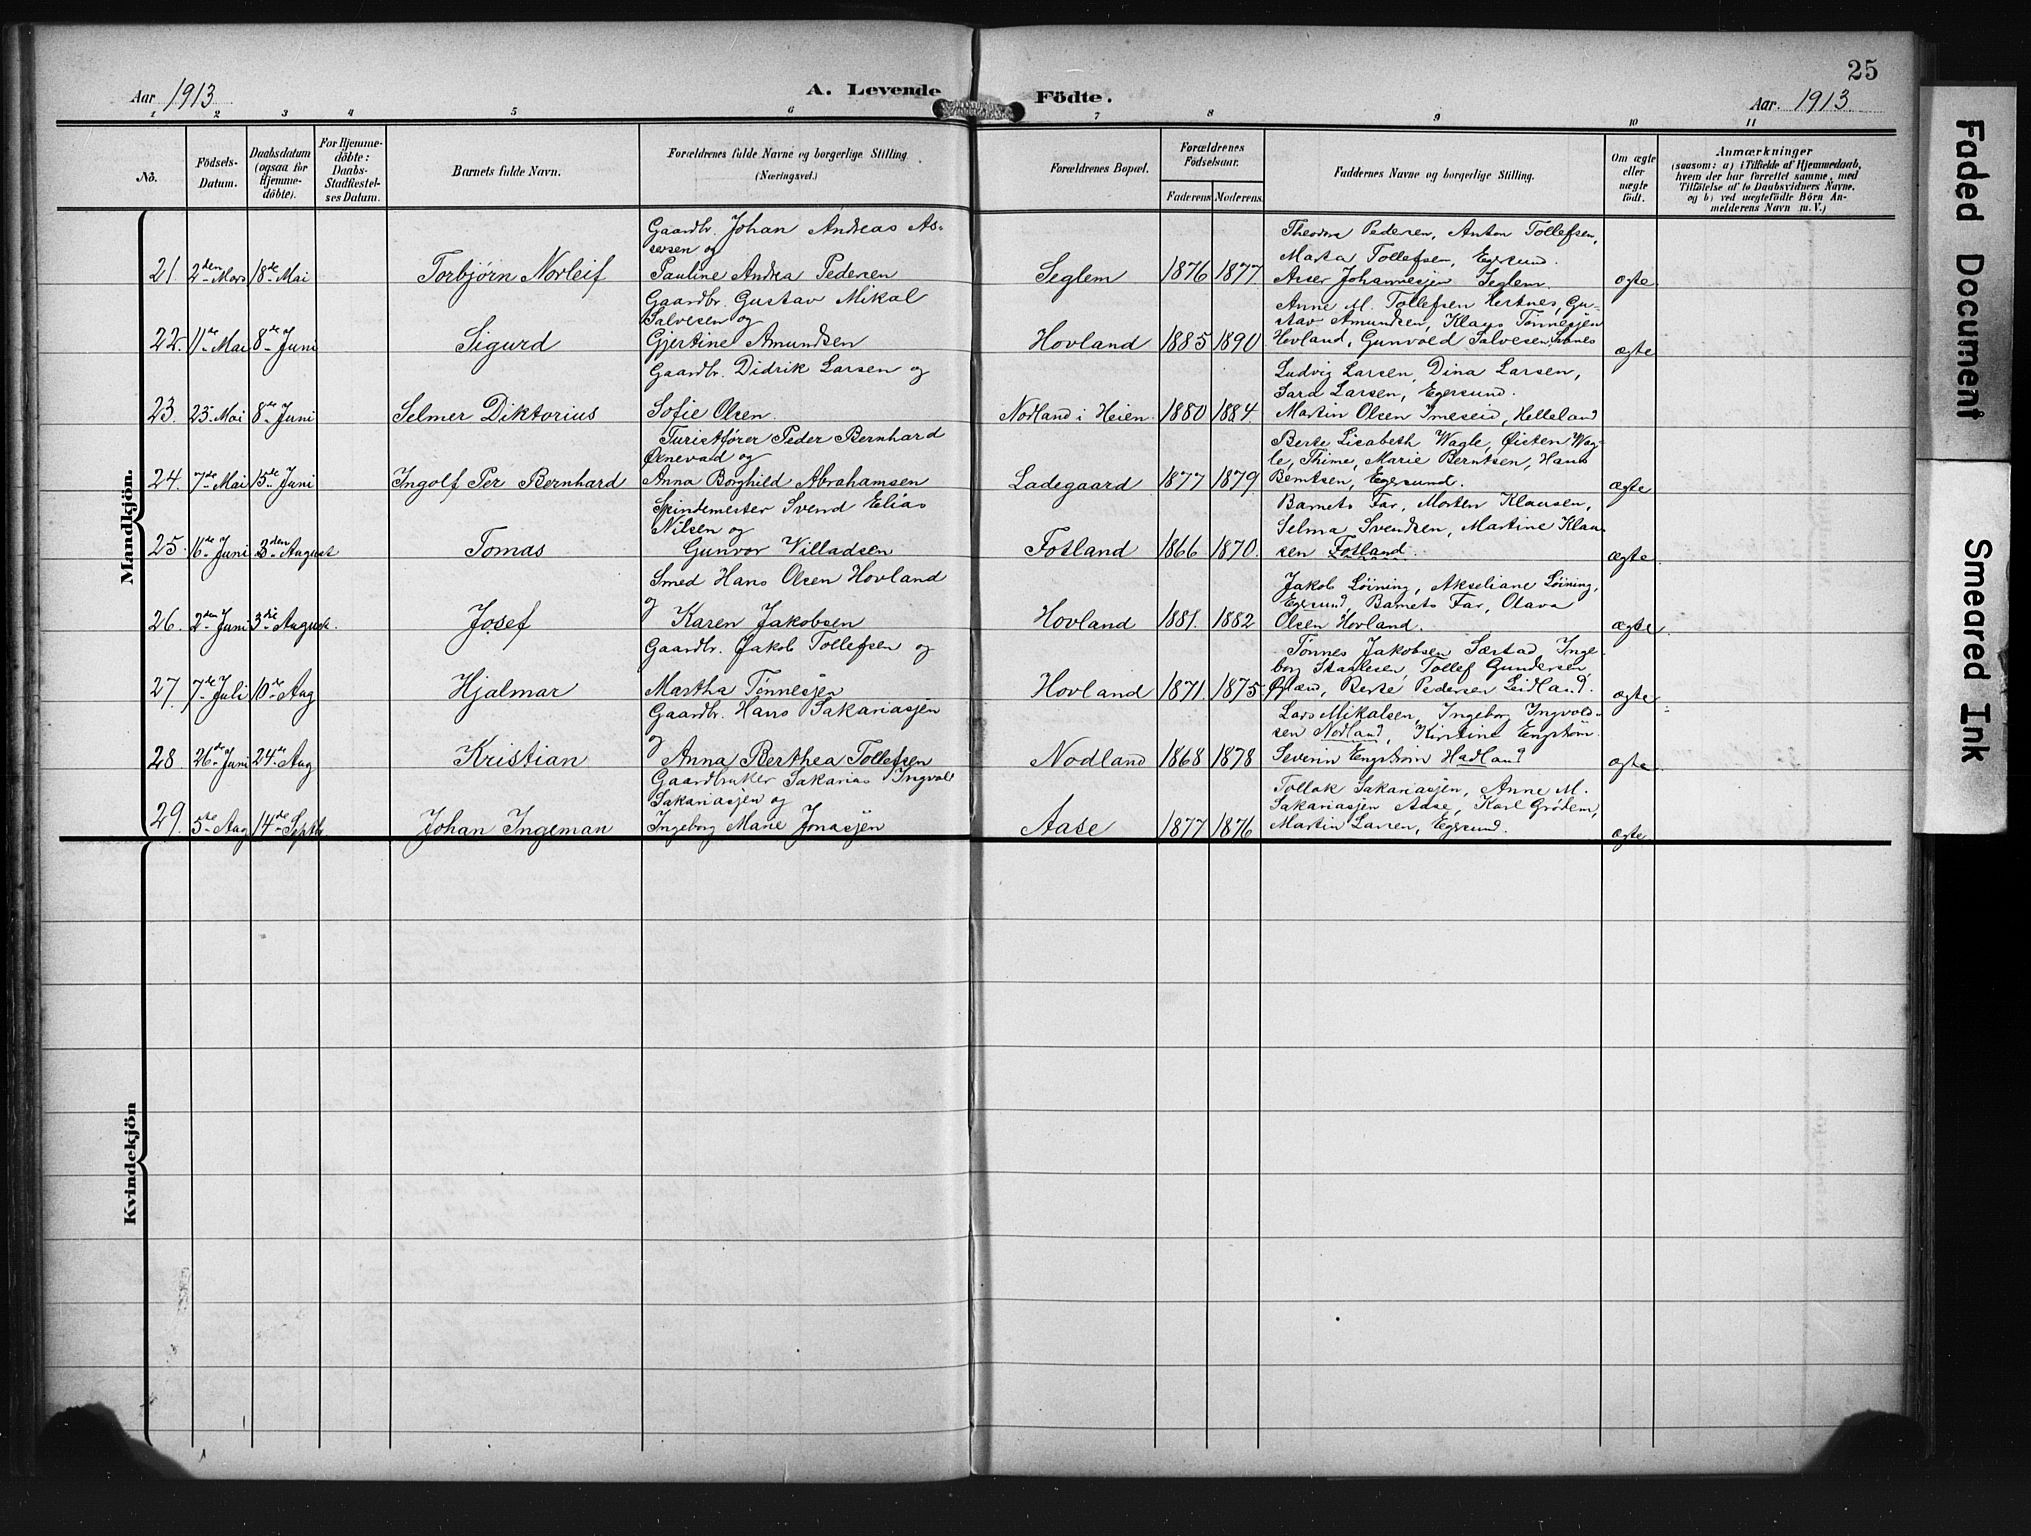 25
Aar 1913
A. Levende Födte.
Aar. 1913
1 2 3 4 5 6 7 8 9 10 11
No.
Födsels-Datum.
Daabsdatum (ogsaa for Hjemme-döbte).
For Hjemme-döbte: Daabs-Stadfæstel-ses Datum.
Barnets fulde Navn.
Forældrenes fulde Navne og borgerlige Stilling (Næringsvei.)
Forældrenes Bopæl.
Forældrenes Födselsaar.
Faderens Moderens
Faddernes Navne og borgerlige Stilling.
Om ægte eller uægte födt.
Anmærkninger
(saasom: a) i Tilfælde af Hjemmedaab, hvem der har forrettet samme, med Tilföielse af to Daabsvidners Navne, og b) ved uægtefödte Börn An-melderens Navn m. V.)
Mandkjön.
21. 2den Mars 18de Mai Torbjørn Norleif
Gaardbr. Johan Andreas As-
sersen og
Pauline Andrea Pedersen
Seglem 1876 1877
Theodora Pedersen, Anton Tollefsen,
Marta Tollefsen, Egersund.
Asser Johannesjen Seglem
ægte
22. 11te Mai 8de Juni Sigurd
Gaardbr. Gustav Mikal
Salvesen og
Gjertine Amundsen
Hovland 1885 1890
Anne M. Tollefsen Hertnes, Gu-
stav Amundsen, Klaus Tønnesjen
Hovland, Gunvold Salvesen,
ægte
23. 23 Mai 8de Juni Selmer Diktorius
Gaardbr. Didrik Larsen og
Sofie Olsen.
Nodland i Heien 1880 1884.
Ludvig Larsen, Dina Larsen,
Sara Larsen, Egersund.
Martin Olsen Imeseid, Helleland
ægte
24. 7de Mai 15de Juni Ingolf Per Bernhard
Turistfører Peder Bernhard
Ørnevad og
Anna Borghild Abrahamsen
Ladegaard 1877 1879
Berte Lisabeth Wagle, Øisten Wag-
le, Thime, Marie Berntsen, Hans
Berntsen, Egersund.
ægte
25. 16de Juni Tomas
Spindemester Svend Elias
Nilsen og
Gunvor Villadsen
Fotland 1866 1870.
Barnets Far, Morten Klausen,
Selma Svendsen, Martine Klau-
sen Fotland.
ægte
26. 2den Juni 3die August. Josef
Smed Hans Olsen Hovland
og
Karen Jakobsen
Hovland 1881. 1882
Jakob Løining, Akseliane Løining,
Egersund, Barnets Far, Olava
Olsen Hovland.
ægte.
27. 7de Juli 10de Aug Hjalmar
Gaardbr. Jakob Tollefsen og
Martha Tønnesjen
Hovland 1871. 1875
Tønnes Jakobsen Sæstad, Inge-
borg Staalesen, Tollef Gundersen,
Berte Pedersen Leidland.
ægte.
28 26de Juni 24de Aug Kristian
Gaardbr. Hans Sakariasjen
og
Anna Berthea Tollefsen
Nodland 1868 1878
Lars Mikalsen, Ingeborg Ingvols-
sen Nodland, Kirstine Engstrøm.
Severin Engstrøm Hadland
ægte.
29. 5te Aug 14de Septbr Johan Ingeman
Gaardbruker Sakarias Ingval
Sakariasjen og
Ingeborg Marie Jonasjen
Aase 1877 1876
Tollak Sakariasjen, Anne M.
Sakariasjen Aase, Karl Grødem,
Martin Larsen, Egersund.
ægte
Kvindekjön
Faded Document
Smeared Ink